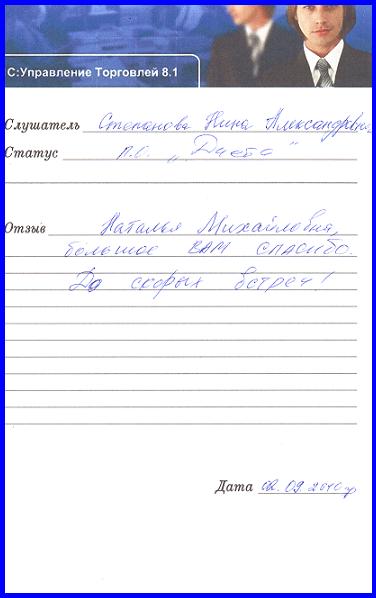 С:Управление Торговлей 8.1
Слушатель Степанова Нина Александровна
Статус "Диета"
Отзыв Наталья Михайловна,
большое ВАМ спасибо.
До скорых встреч!
Дата 02.09.2010 г